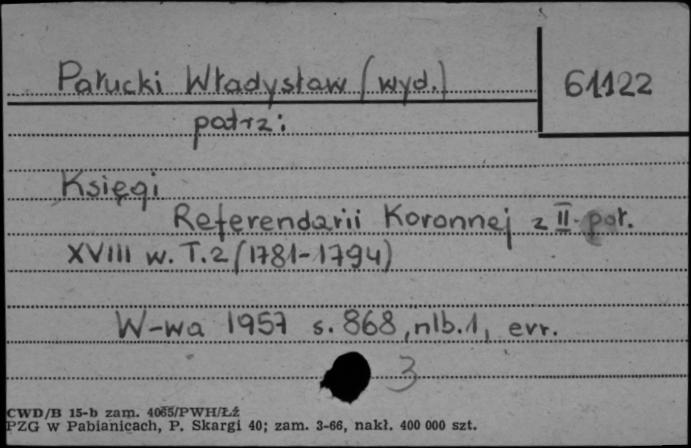 Pałucki Władysław (wyd.) 61122
patrz:
Księgi
Referendarii Koronnej z II poł.
XVIII w. T.2 (1781-1794)
W-wa 1957 s. 868, nlb.1, err.
3
CWD/B 15-b zam. 4065/PWH/Łź
PZG w Pabianicach, P. Skargi 40; zam. 3-66, nakł. 400 000 szt.